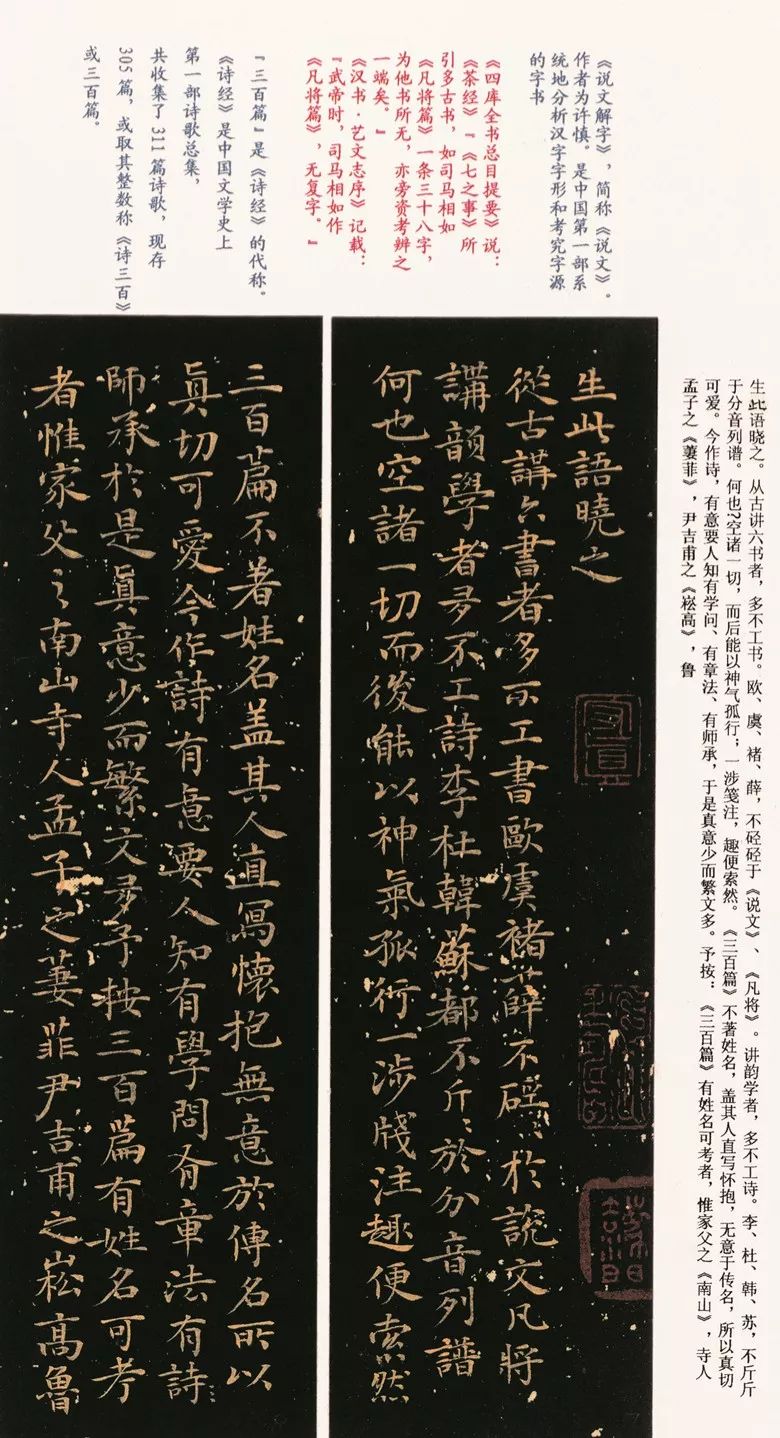 《说文解字》，简称《说文》。
作者为许慎。是中国第一部系
统地分析汉字字形和考究字源
的字书
《四库全书总目提要》说：
《茶经》『《七之事》所
引多古书，如司马相如
《凡将篇》一条三十八字，
为他书所无，亦旁资考辨之
一端矣。』
《汉书·艺文志序》记载：
『武帝时，司马相如作
《凡将篇》，无复字。』
『三百篇』是《诗经》的代称。
《诗经》是中国文学史上
第一部诗歌总集，
共收集了311篇诗歌，现存
305篇，或取其整数称《诗三百》
或三百篇。
生此语晓之。从古讲六书者，多不工书。欧、虞、褚、薛，不硁硁于《说文》、《凡将》。讲韵学者，多不工诗。李、杜、韩、苏，不斤斤
于分音列谱。何也?空诸一切，而后能以神气孤行；一涉笺注，趣便索然。《三百篇》不著姓名，盖其人直写怀抱，无意于传名，所以真切
可爱。今作诗，有意要人知有学问、有章法、有师承，于是真意少而繁文多。予按：《三百篇》有姓名可考者，惟家父之《南山》，寺人
孟子之《萋菲》，尹吉甫之《崧高》，鲁
生此語曉之
從古講六書者多不工書歐虞褚薛不硜〻於說文凡將
講韻學者多不工詩李杜韓蘇都不斤〻於分音列譜
何也空諸一切而後能以神氣孤行一涉牋注趣便索然
三百篇不著姓名盖其人直寫懷抱無意於傳名所以
真切可愛今作詩有意要人知有學問有章法有詩
師承於是真意少而繁文多予按三百篇有姓名可考
者惟家父之南山寺人孟子之萋菲尹吉甫之崧高魯